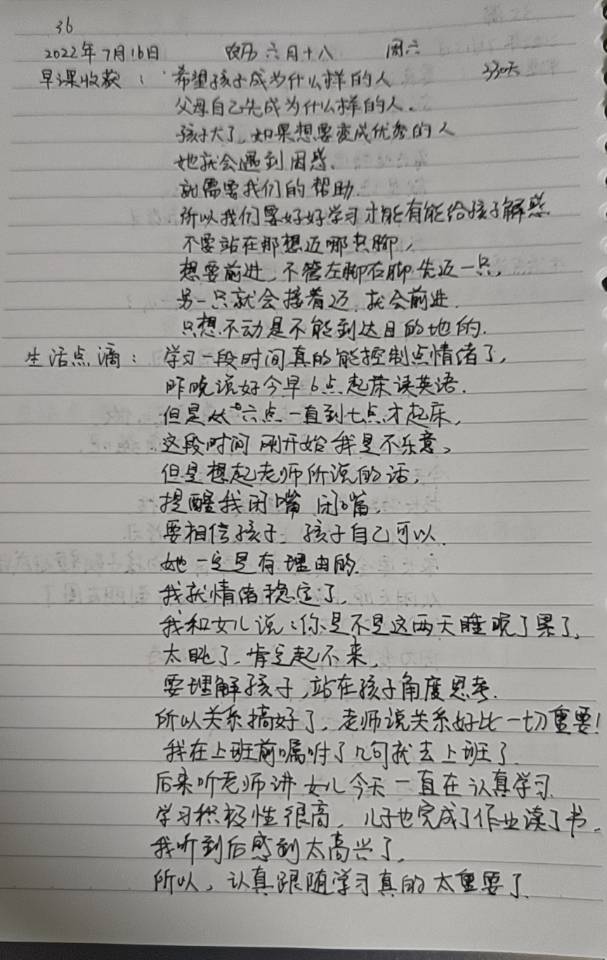 36
2022年7月16日 农历六月十八 周六
330天
早课收获：希望孩子成为什么样的人
父母自己先成为什么样的人。
孩子大了，如果想要变成优秀的人
她就会遇到困惑.
就需要我们的帮助.
所以我们要好好学习才能有能给孩子解惑
不要站在那想迈哪只脚，
想要前进，不管左脚右脚先迈一只，
另一只就会接着迈.就会前进.
只想不动是不能到达目的地的.
生活点滴：学习一段时间真的能控制点情绪了，
昨晚说好今早6点起床读英语.
但是从六点一直到七点才起床，
这段时间刚开始我是不乐意。
但是想起老师所说的话，
提醒我闭嘴 闭嘴
要相信孩子.孩子自己可以.
她一定是有理由的
我就情绪稳定了，
我和女儿说：你是不是这两天睡晚了累了，
太晚了，肯定起不来，
要理解孩子，站在孩子角度思考.
所以关系搞好了，老师说关系好比一切重要！
我在上班前嘱咐了几句就去上班了
后来听老师讲女儿今天一直在认真学习.
学习积极性很高，儿子也完成了作业读了书。
我听到后感到太高兴了，
所以，认真跟随学习真的太重要了.